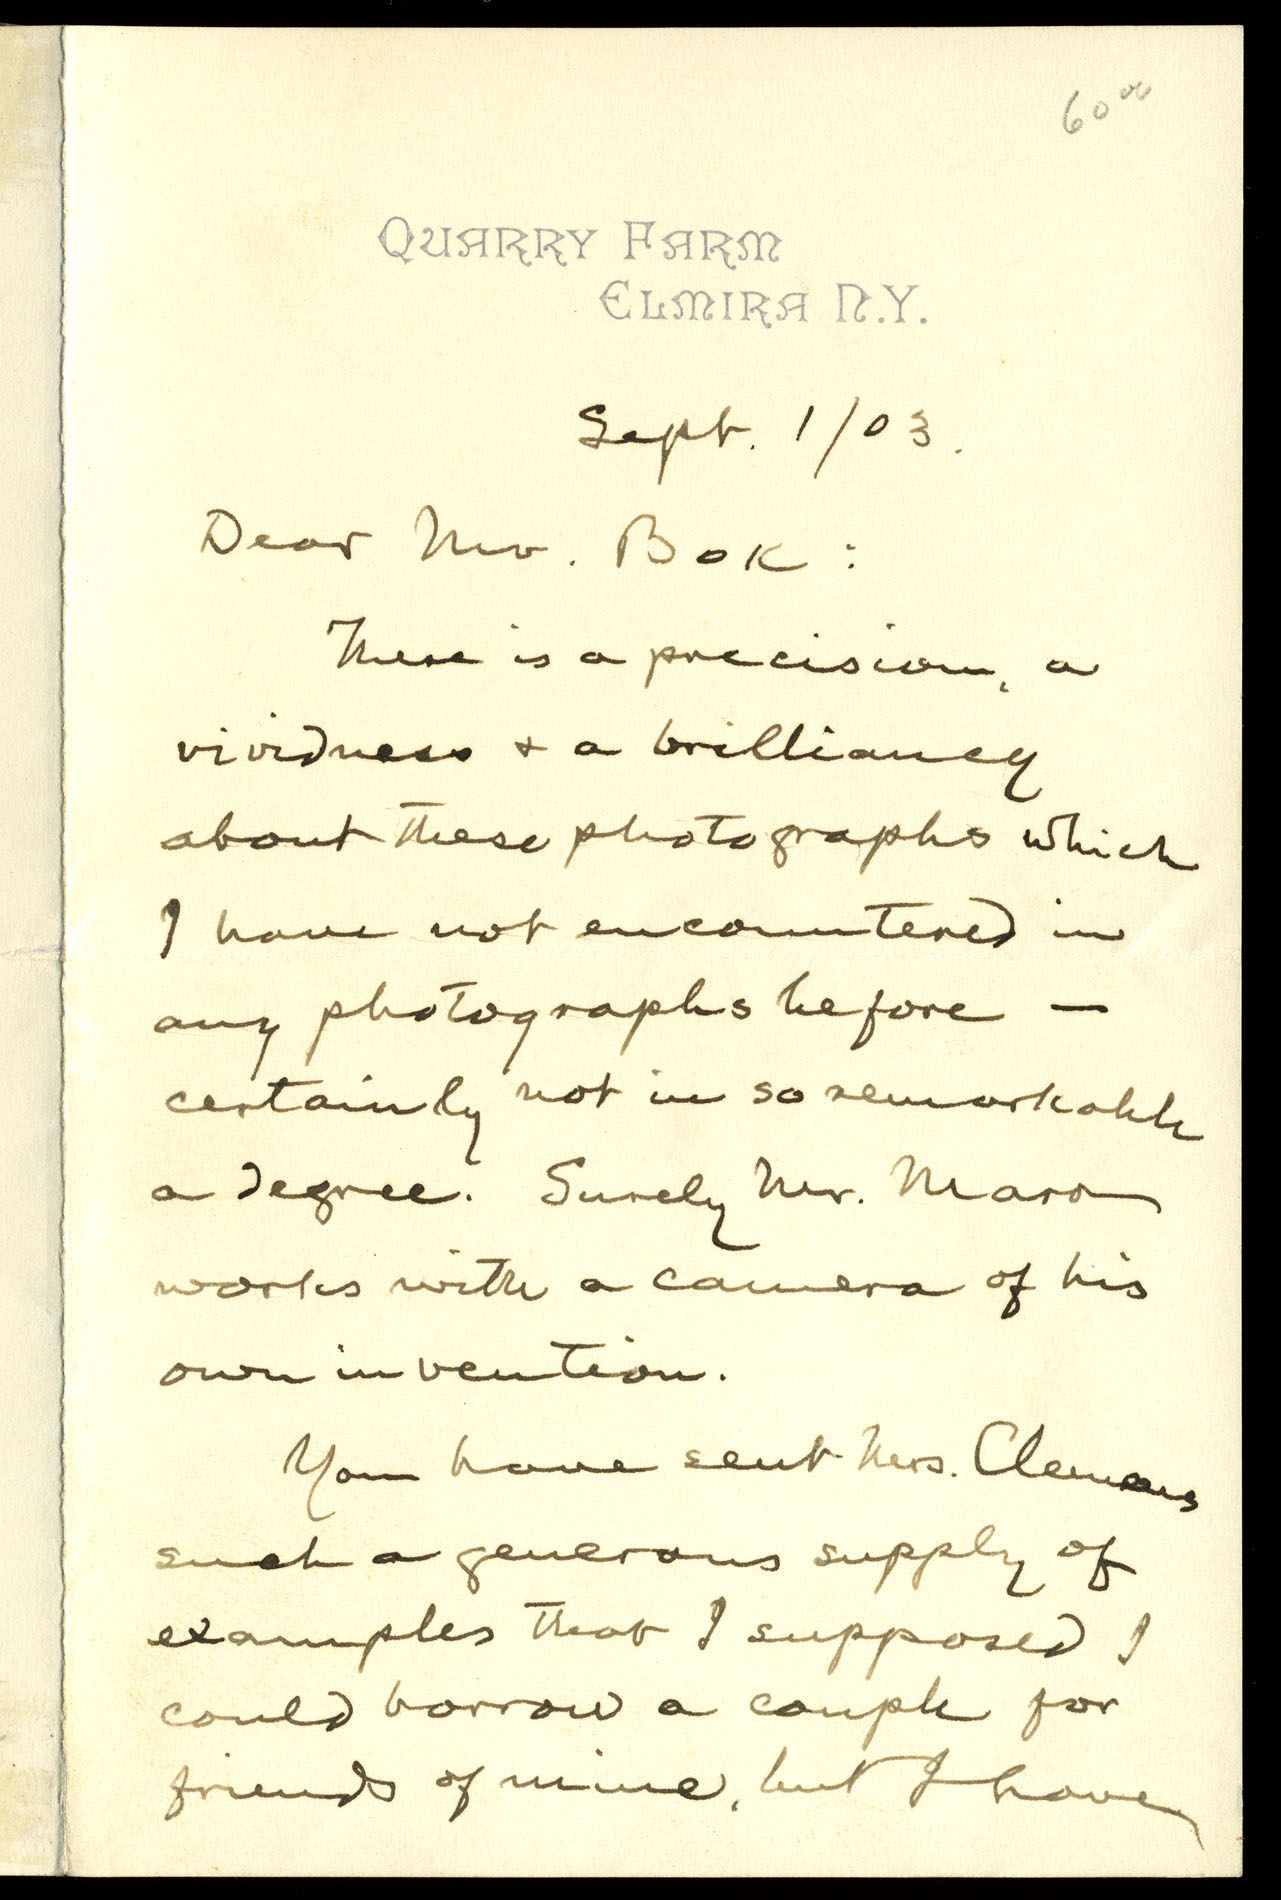 60 00
QUARRY FARM
ELMIRA N.Y.
Sept. 1/03.
Dear Mr. Bok:
There is a precision, a
vividness & a brilliancy
about these photographs which
I have not encountered in
any photographs before —
certainly not in so remarkable
a degree. Surely Mr. Maro
works with a camera of his
own invention.
You have sent Mrs. Clemens
such a generous supply of
examples that I supposed I
could borrow a couple for
friends of mine, but I have